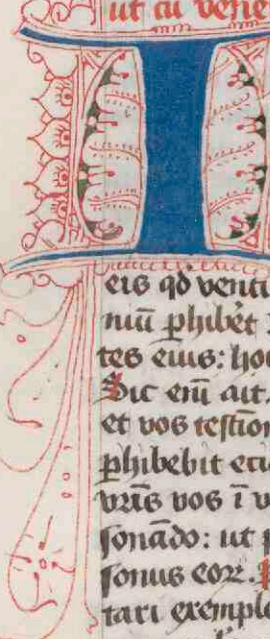 ut cū venę
I
eis qđ venti
niū phibēt
tes eius: hoc
Sic eni ait.
et vos testīon
phibebit etiā
vrās vos ī v
sonādo: ut p
sonus eoꝝ.
tari exemplo